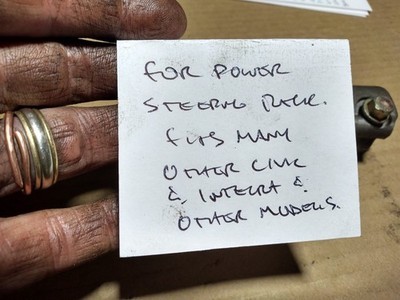 FOR POWER
STEERING RACK.
FITS MANY
OTHER CIVIC
& INTEGRA &
OTHER MODELS.